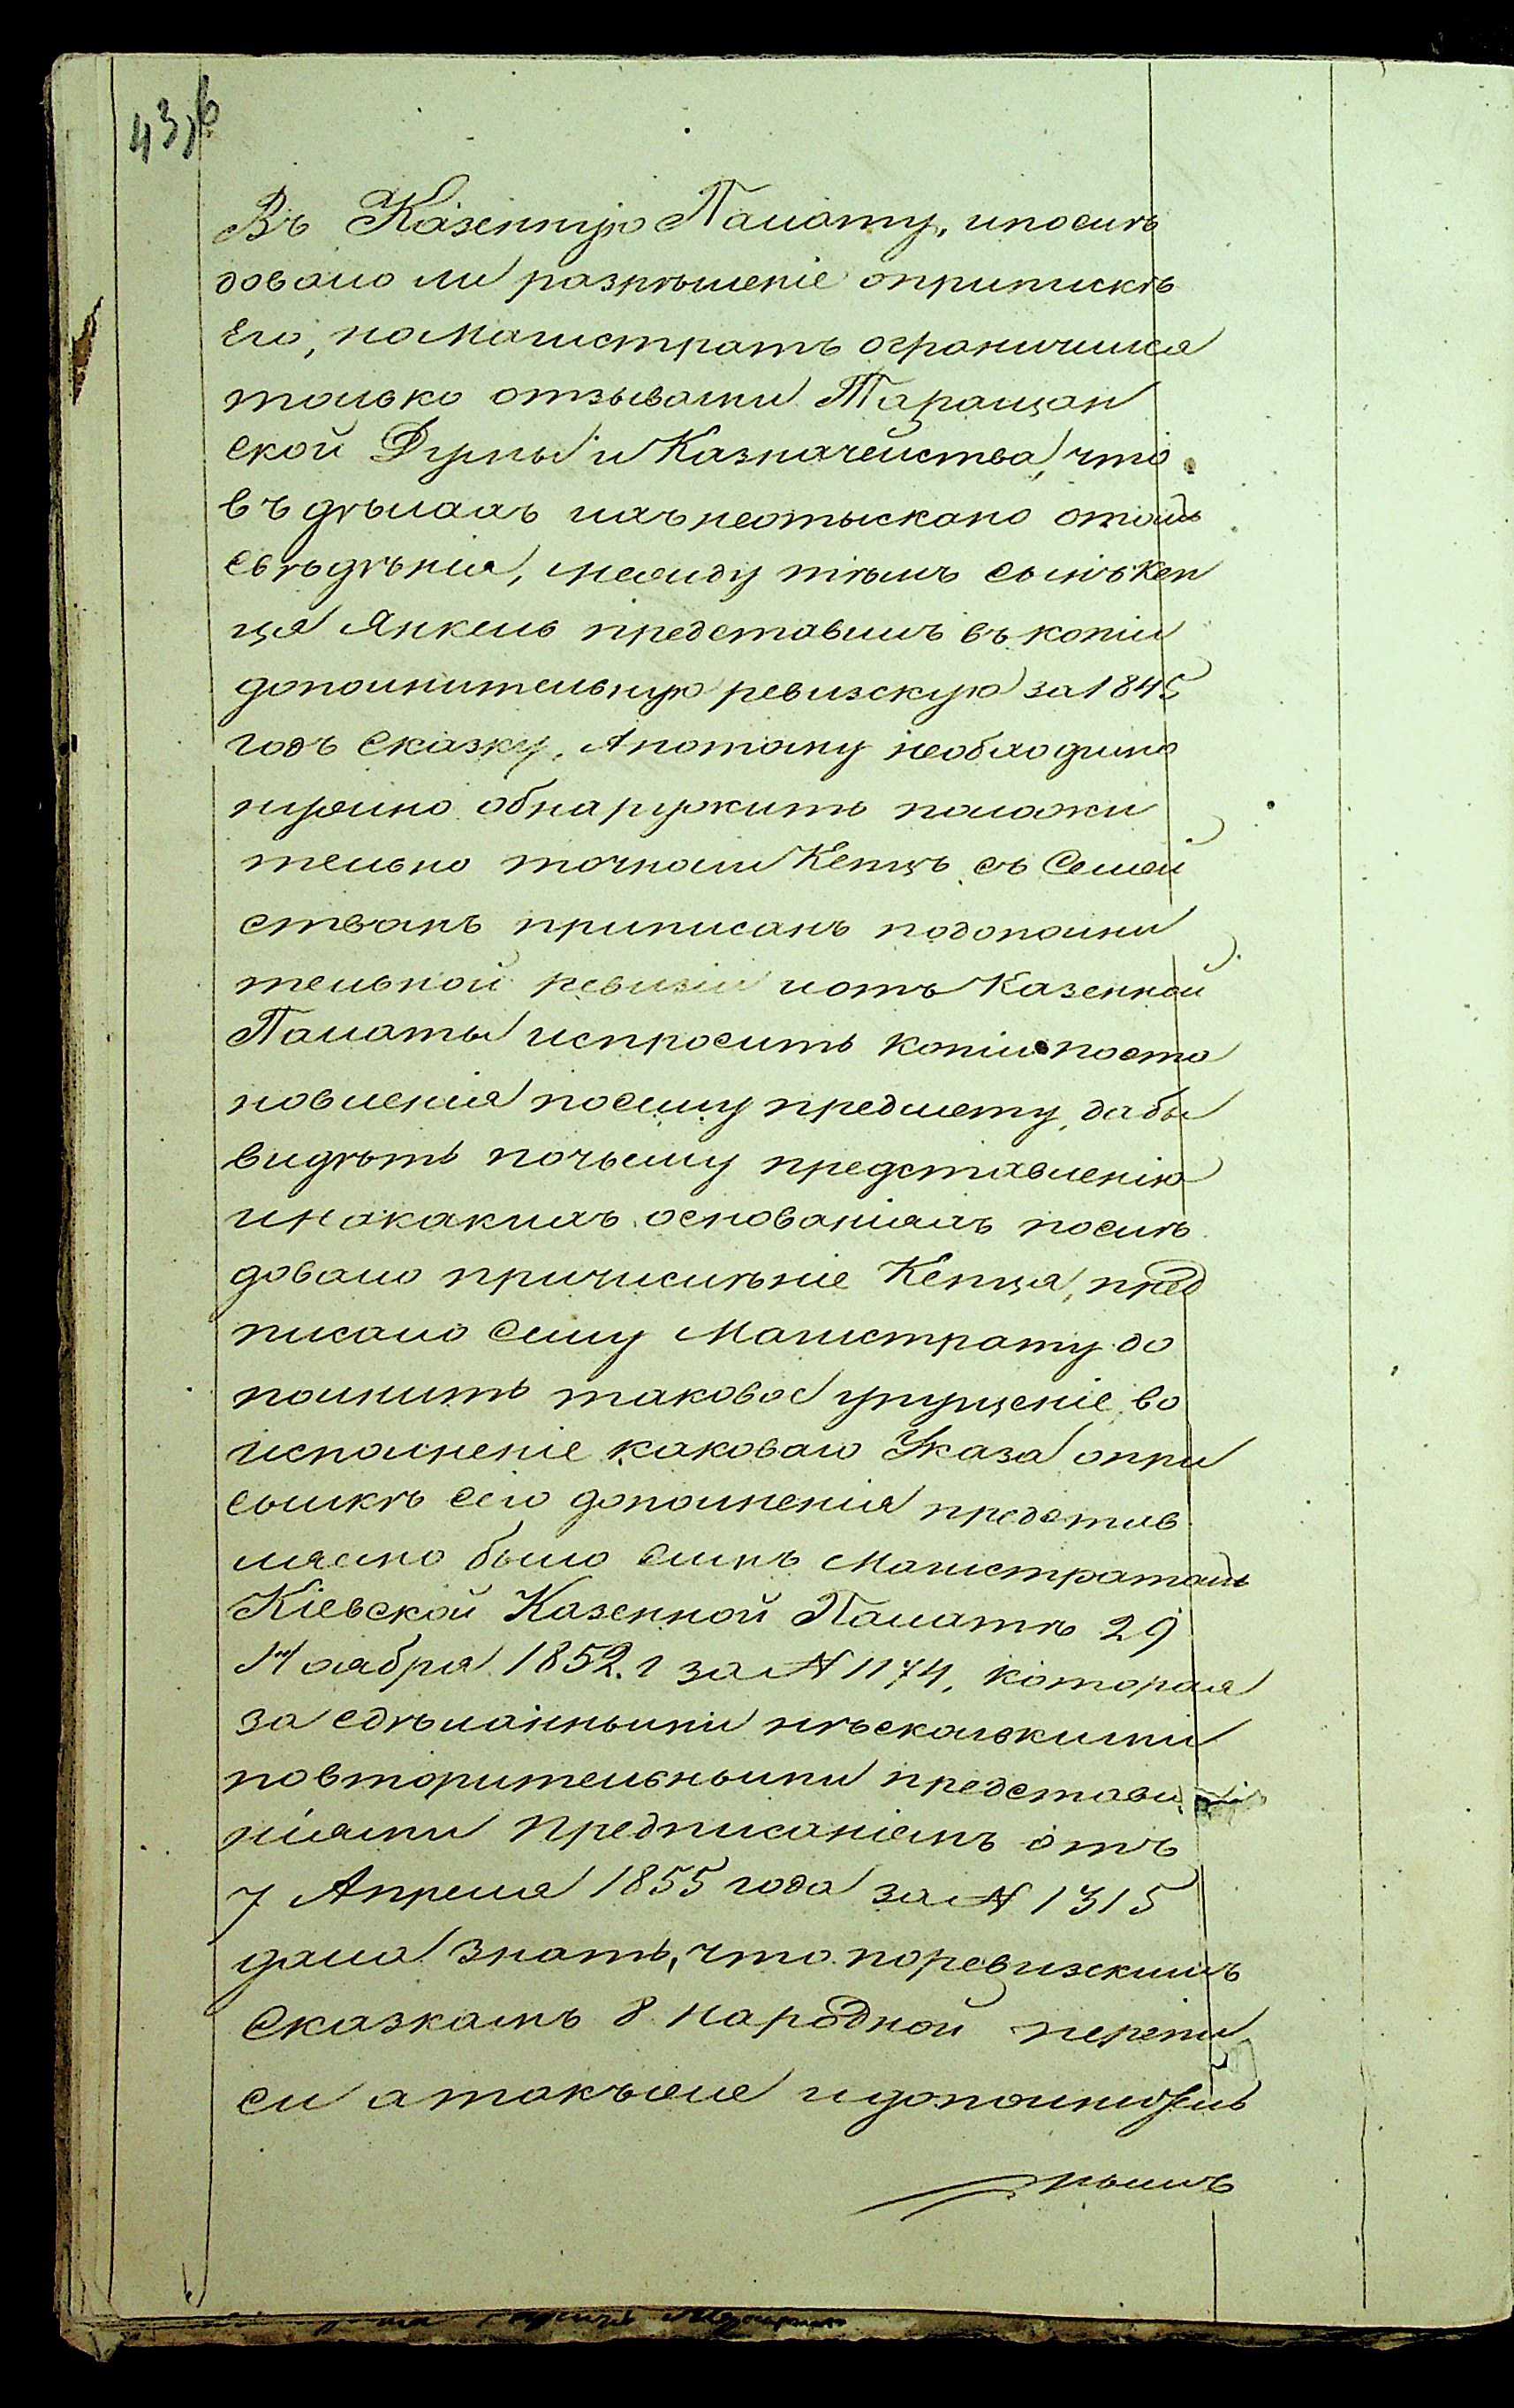 43,б
Въ Казенную Палату, ипослѣ
довало ли разрѣшеніе оприпискѣ
Его, но Магистратъ ограничился
только отзывами Таращан
ской Думы и Казначейства, что
въ дѣлахъ ихъ неотыскано отомъ
свѣдѣнія, между тѣмъ сынъ Кеп
ця Янкель представилъ въ копіи
дополнительную ревизскую за 1845
годъ сказку. Апотому необходимо
нужно обнаружить положи
тельно точноли Кепцъ съ Семей
ствомъ приписанъподополни
тельной ревизіи иотъ Казенной
Палаты испросить копію поста
новленія посему предмету, дабы
видѣть почьему представленію
инакакихъ основаніяхъ послѣ
довало причислѣніе Кепця, пред
писало сему Магистрату до
полнить таковое упущеніе, во
исполненіе каковаго Указа опри
сылкѣ сего дополненія представ
лямо было симъ Магистратомъ
Кіевской Казенной Палатѣ 29
Ноября 1852. г за № 1174, которая
за сдѣланными нѣсколькими
повторительными представле
ніями предписаніемъ отъ
7 Апреля 1855 года за № 1315
дала знать, что поревизскимъ
сказкамъ 8 народной перепи
си а такъже идополнитель
нымъ